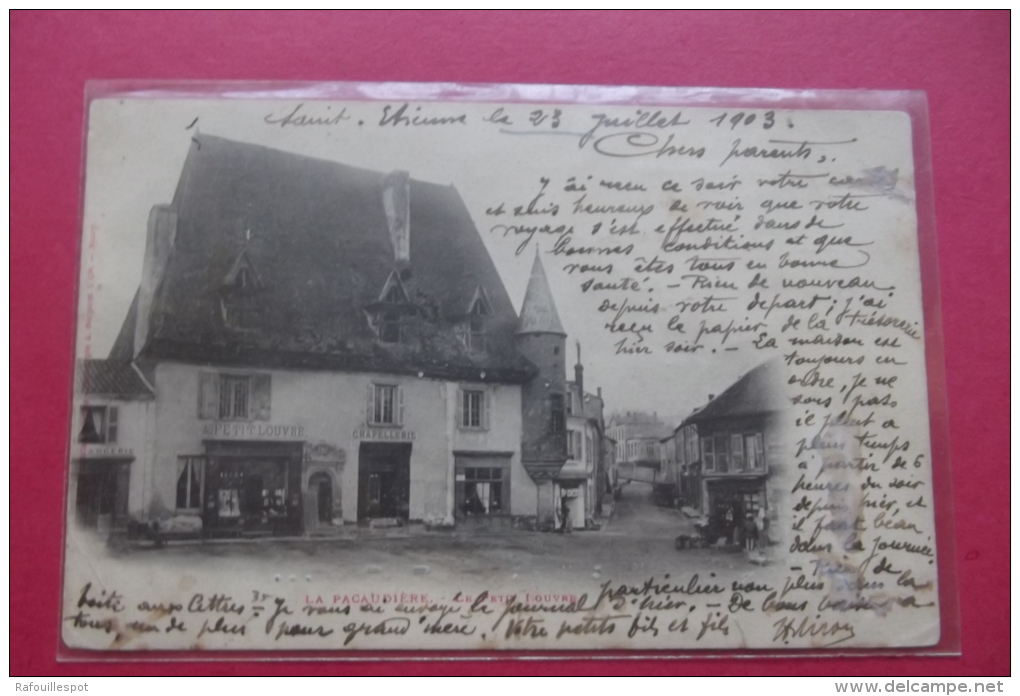 Saint-Etienne le 23 juillet 1903.
Chers parents,
J'ai reçu ce soir votre
et suis heureux de voir que votre
voyage s'est effectué dans de
bonnes conditions et que
vous êtes tous en bonne
santé. - Rien de nouveau
depuis votre départ ; j'ai
reçu le papier de la trésorerie
hier soir. - La maison est
toujours en
ordre, je ne
sors pas
il pleut a
plein temps
à partir de 6
heures du soir
depuis hier, et
il fait beau
dans la journée
- Rien de
particulier non plus dans la
boîte aux lettres - Je vous ai envoyé le journal d'hier. - De bons baisers a
tous, un de plus pour grand'mère. Votre petits fils et fils
PETIT LOUVRE
CHAPELLERIE
LA PACAUDIÈRE. - LE PETIT LOUVRE
Rafouillespot
www.delcampe.net